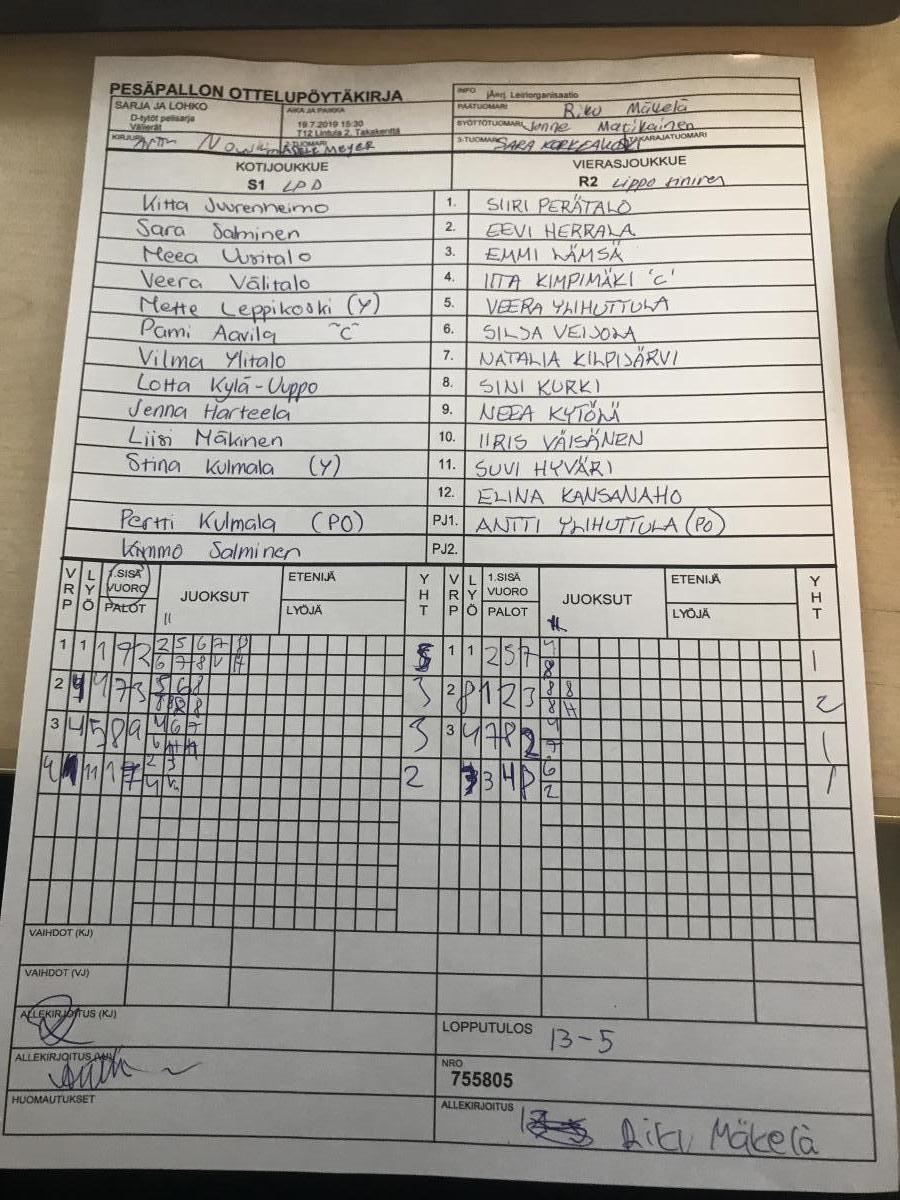 PESÄPALLON OTTELUPÖYTÄKIRJA
INFO jÄerj. Leiriorganisaatio
SARJA JA LOHKO
D-tytöt pelisarja
Välierät
AIKA JA PAIKKA
19.7.2019 15:30
T12 Lintula 2, Takakenttä
PÄÄTUOMARI Riku Mäkelä
SYÖTTÖTUOMARI Jenne Matikainen
KIRJURI
2-TUOMARI MEYER
3-TUOMARI SARA KORKEAKOSKI TAKARAJATUOMARI
KOTIJOUKKUE
S1 LPD
VIERASJOUKKUE
R2 Lippo
Kitta Juurenheimo 1. SIIRI PERÄTALO
Sara Salminen 2. EEVI HERRALA
Meea Uusitalo 3. EMMI LÄMSÄ
Veera Välitalo 4. IITA KIMPIMÄKI "C"
Mette Leppikoski (Y) 5. VEERA YLIHUTTULA
Pami Aavila "C" 6. SILJA VEIJOLA
Vilma Ylitalo 7. NATALIA KILPIJÄRVI
Lotta Kylä-Uuppo 8. SINI KURKI
Jenna Harteela 9. NEEA KYTÖLÄ
Liisi Mäkinen 10. IIRIS VÄISÄNEN
Stina Kulmala (Y) 11. SUVI HYVÄRI
12. ELINA KANSANAHO
Pertti Kulmala (PO) PJ1. ANTTI YLIHUTTULA (PO)
Kimmo Salminen PJ2.
VRP LYÖ 1.SISÄ VUORO PALOT JUOKSUT ETENIJÄ LYÖJÄ YHT VRP LYÖ 1.SISÄ VUORO PALOT JUOKSUT ETENIJÄ LYÖJÄ YHT
1 1 1 9 2 2 5 6 7 8 5 1 1 2 5 7 4 1
6 7 8 8
2 4 7 3 5 6 8 3 2 8 1 2 3 8 8 2
8 8 8 H
3 4 5 8 9 4 6 7 3 3 4 7 8 2 4 1
6 H H 7
4 11 1 7 2 3 2 3 4 8 6 1
4 2
VAIHDOT (KJ)
VAIHDOT (VJ)
ALLEKIRJOITUS (KJ)
LOPPUTULOS 13-5
ALLEKIRJOITUS (VJ)
NRO
755805
HUOMAUTUKSET
ALLEKIRJOITUS Riku Mäkelä